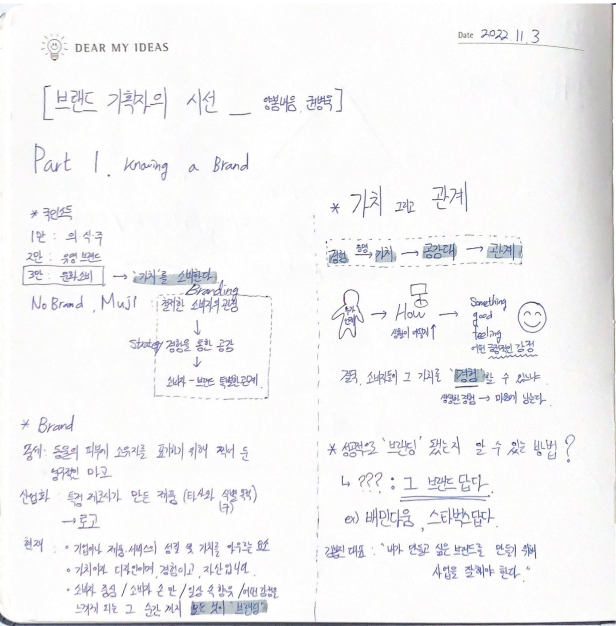 DEAR MY IDEAS
Date 2022. 11. 3
[브랜드 기획자의 시선 _ 양봉내음, 권병욱]
Part 1. Knowing a Brand
* 국민소득
1만 : 의식주
2만 : 유명 브랜드
3만 : 문화소비 → '가치'를 소비한다
No Brand, Muji : 철저한 소비자의 관점
Branding
↓
Strategy 경험을 통한 공감
↓
소비자 - 브랜드 특별한 관계.
* Brand
중세 : 동물의 피부에 소유자를 표기하기 위해 찍어 둔
낭만적인 마크
산업화 : 특정 제조사가 만든 제품 (타사와 식별 목적)
→ 로고
현재 : • 기업이나 제품·서비스의 성격 및 가치를 아우르는 요소
• 가치이자 디자인이며, 경험이고, 자산입니다.
• 소비자 중심 / 소비자 손 안 / 일상 속 향유 / 어떤 감정을
느끼게 되는 그 순간까지 모든 것이 '브랜딩'
* 가치 그리고 관계
경험 → 가치 → 공감대 → 관계
→ How →
Something
good
feeling
어떤 긍정적인 감정
결국, 소비자들이 그 가치를 '경험'할 수 있느냐.
생생한 경험 →
* 성공적으로 '브랜딩' 됐는지 알 수 있는 방법?
↳ ??? : 그 브랜드답다.
ex) 배민다움, 스타벅스답다.
대표 : "내가 만들고 싶은 브랜드를 만들기 위해
사업을 잘해야 한다."